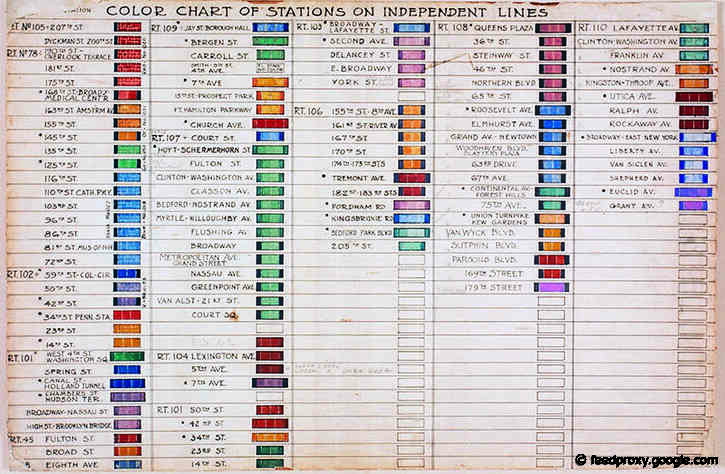 STATION COLOR CHART OF STATIONS ON INDEPENDENT LINES
RT. Nº 105 • 207TH ST.
DYCKMAN ST. 200TH ST.
RT. Nº 78•
OVERLOOK TERRACE
181ST ST.
175TH ST.
168TH ST. BROADY-
MEDICAL CENTR
163RD ST. AMSTRM AV.
155TH ST.
145TH ST.
135TH ST.
125TH ST.
116TH ST.
110TH ST. CATH. PKY.
103RD ST.
96TH ST.
86TH ST.
81ST ST. MUS-OF-NH
72ND ST.
RT. 102• 59TH ST-COL-CIR
50TH ST.
42ND ST.
34TH ST. PENN. STA.
23RD ST
14TH ST.
RT. 101 WEST 4TH ST.
WASHINGTON SQ.
SPRING ST.
CANAL ST-
HOLLAND TUNNEL
CHAMBERS ST.
HUDSON TER.
BROADWAY-NASSAU ST
HIGH ST-BROOKLYN BRIDGE
RT. 45 FULTON ST.
BROAD ST
EIGHTH AVE
RT. 109 JAY ST. BOROUGH HALL
BERGEN ST.
CARROLL ST.
SMITH-9TH ST.
4TH AVE.
7TH AVE
15TH ST-PROSPECT PARK
FT. HAMILTON PARKWAY
CHURCH AVE.
RT. 107 • COURT ST.
HOYT-SCHERMERHORN ST.
FULTON ST.
CLINTON-WASHINGTON AV.
CLASSON AV.
BEDFORD-NOSTRAND AV.
MYRTLE-WILLOUGHBY AV.
FLUSHING AV.
BROADWAY
METROPOLITAN AVE.
GRAND STREET
NASSAU AVE.
GREENPOINT AVE
VAN ALST-21ST ST.
COURT SQ.
RT. 104 LEXINGTON AVE.
5TH AVE.
7TH AVE.
RT. 101 50TH ST.
42ND ST
34TH ST.
23RD ST
14TH ST.
RT. 103 BROADWAY-
LAFAYETTE ST.
SECOND AVE.
DELANCEY ST.
E. BROADWAY
YORK ST.
RT. 106 155TH ST-8TH AVE.
161ST ST-RIVER AV
167TH ST.
170TH ST.
174TH-175TH STS
TREMONT AVE.
182ND-183RD STS
FORDHAM RD
KINGSBRIDGE RD
BEDFORD PARK BLVD
205TH ST.
RT. 108 QUEENS PLAZA
36TH ST.
STEINWAY ST.
46TH ST.
NORTHERN BLVD
65TH ST.
ROOSEVELT AV.
ELMHURST AV.
GRAND AV-NEWTOWN
WOODHAVEN BLVD.
SLATTERY PLAZA
63RD DRIVE
67TH AVE.
CONTINENTAL AV-
FOREST HILLS
75TH AVE.
UNION TURNPIKE
KEW GARDENS
VAN WYCK BLVD.
SUTPHIN BLVD.
PARSONS BLVD.
169TH STREET
179TH STREET
RT. 110 LAFAYETTE AV.
CLINTON-WASHINGTON AV.
FRANKLIN AV.
NOSTRAND AV.
KINGSTON-THROOP AVE.
UTICA AVE.
RALPH AV.
ROCKAWAY AV.
BROADWAY-EAST NEW YORK
LIBERTY AV.
VAN SICLEN AV.
SHEPHERD AV.
EUCLID AV.
GRANT AV.
© feedproxy.google.com